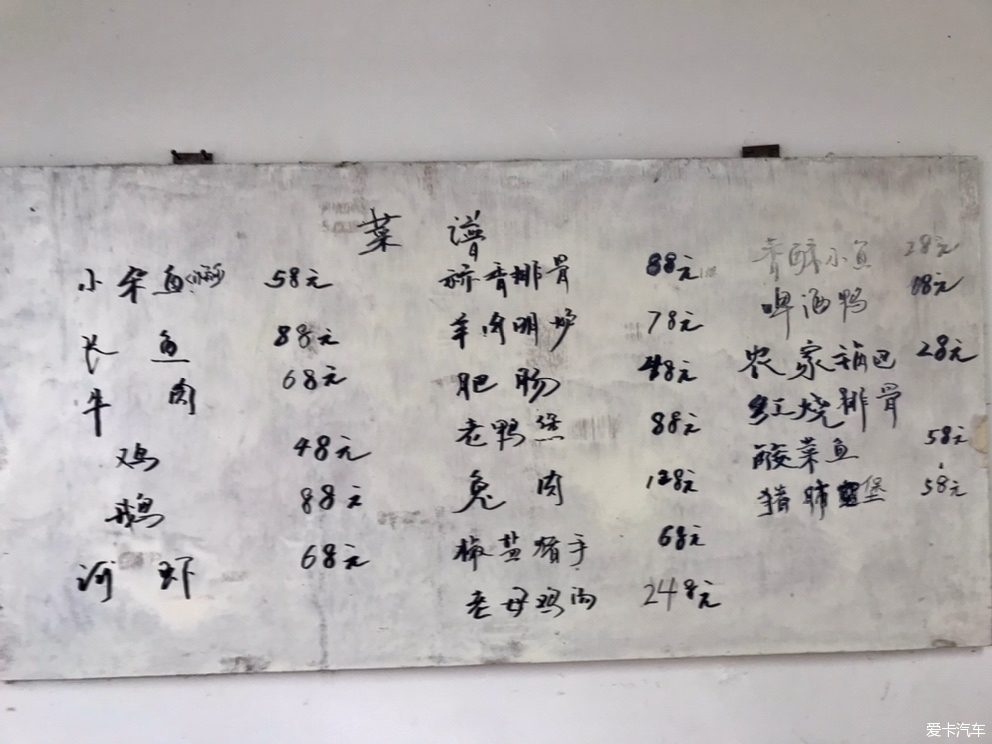 菜 谱
小杂鱼 58元
长鱼 88元
牛肉 68元
鸡 48元
鹅 88元
河虾 68元
香排骨 88元
羊肉明炉 78元
肥肠 48元
老鸭煲 88元
兔肉 128元
椒盐猪手 68元
老母鸡汤 248元
香酥小鱼 28元
啤酒鸭 68元
农家锅巴 28元
红烧排骨
酸菜鱼 58元
猪肺堡 58元
爱卡汽车